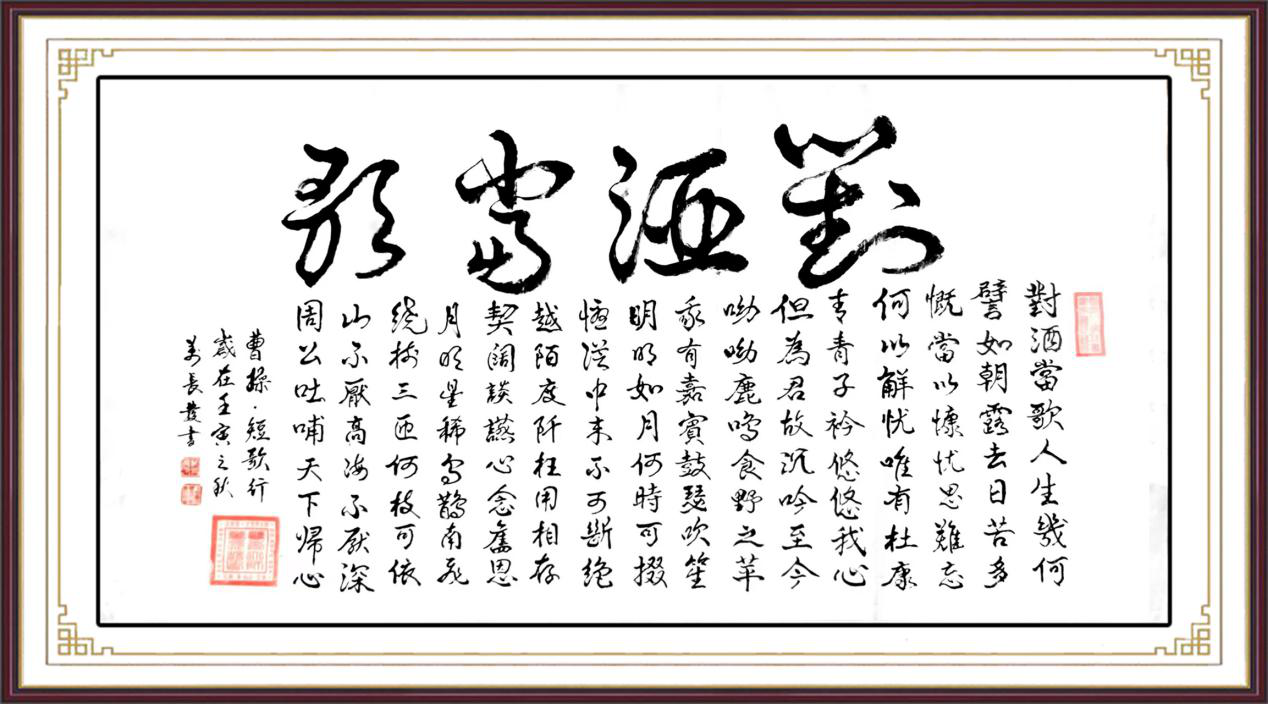 對酒當歌
對酒當歌人生幾何
譬如朝露去日苦多
慨當以慷忧思難忘
何以解忧唯有杜康
青青子衿悠悠我心
但為君故沉吟至今
呦呦鹿鳴食野之苹
我有嘉賓鼓瑟吹笙
明明如月何時可掇
憂從中来不可斷絕
越陌度阡枉用相存
契闊談讌心念舊恩
月明星稀烏鵲南飛
绕樹三匝何枝可依
山不厭高海不厭深
周公吐哺天下歸心
曹操·短歌行
歲在壬寅之秋
長發書